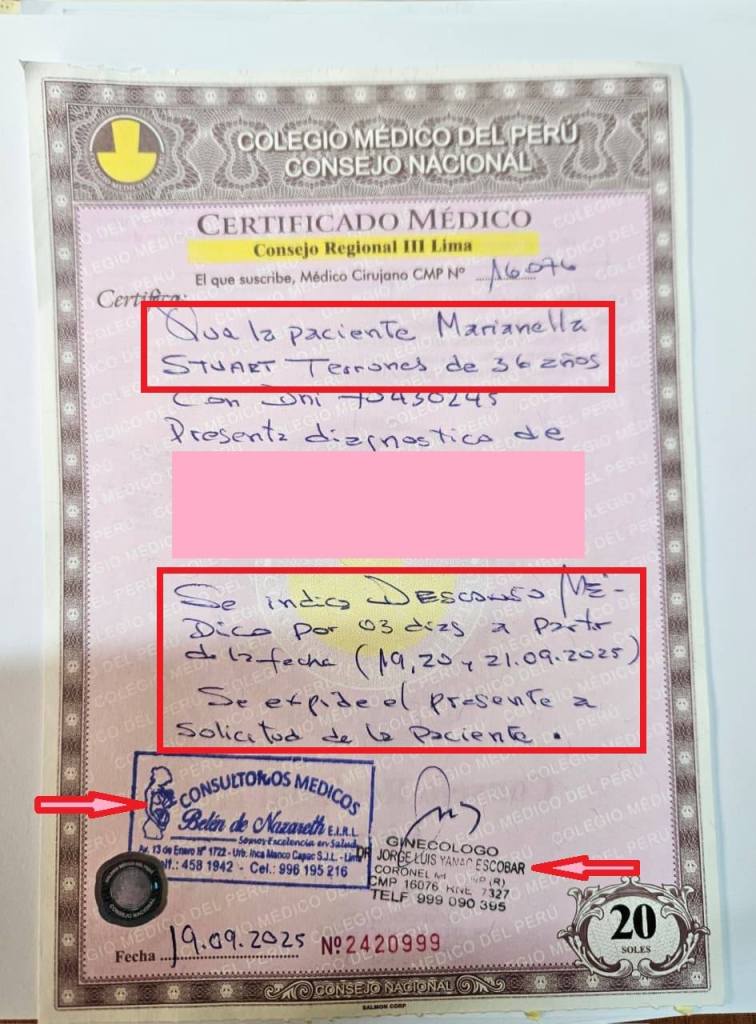 COLEGIO MÉDICO DEL PERÚ
CONSEJO NACIONAL
CERTIFICADO MÉDICO
Consejo Regional III Lima
El que suscribe, Médico Cirujano CMP Nº 16076
Certifica:
Que la paciente Marianella
STUART Terrones de 36 años
Con Dni 70430245
Presenta diagnostico de
Se indica DESCANSO MÉ-
Dico por 03 dias a partir
de la fecha (19, 20 y 21.09.2025)
Se expide el presente a
solicitud de la paciente.
CONSULTORIOS MEDICOS
Belén de Nazareth E.I.R.L.
Somos Excelencia en Salud
Av. 13 de Enero Nº 1722 - Urb. Inca Manco Capac S.J.L. - Lima
Telf.: 458 1942 - Cel.: 996 195 216
GINECOLOGO
DR JORGE LUIS YANAC ESCOBAR
CORONEL (R)
CMP 16076 RNE 7327
TELF 999 090 395
20
SOLES
Fecha 19.09.2025 Nº 2420999
CONSEJO NACIONAL
SALMON CORP